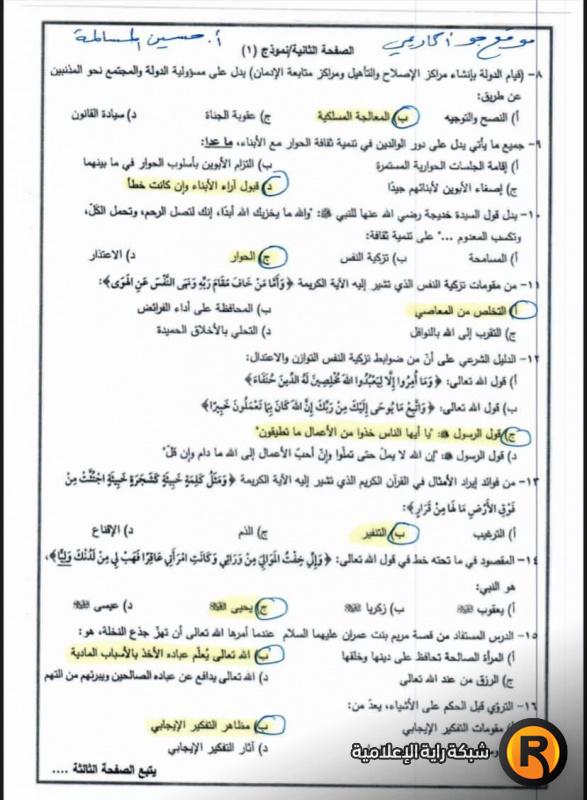 موقع جو أكاديمي
أ. حسين المسالمة
الصفحة الثانية/نموذج (١)
٨- (قيام الدولة بإنشاء مراكز الإصلاح والتأهيل ومراكز متابعة الإدمان) يدل على مسؤولية الدولة والمجتمع نحو المذنبين
عن طريق:
أ) النصح والتوجيه ب) المعالجة المسلكية ج) عقوبة الجناة د) سيادة القانون
٩- جميع ما يأتي يدل على دور الوالدين في تنمية ثقافة الحوار مع الأبناء، ما عدا:
أ) إقامة الجلسات الحوارية المستمرة ب) التزام الأبوين بأسلوب الحوار في ما بينهما
ج) إصغاء الأبوين لأبنائهم جيدًا د) قبول آراء الأبناء وإن كانت خطأ
١٠- يدل قول السيدة خديجة رضي الله عنها للنبي ﷺ: "والله ما يخزيك الله أبدًا، إنك لتصل الرحم، وتحمل الكَلّ،
وتكسب المعدوم ..." على تنمية ثقافة:
أ) المسامحة ب) تزكية النفس ج) الحوار د) الاعتذار
١١- من مقومات تزكية النفس الذي تشير إليه الآية الكريمة ﴿وَأَمَّا مَنْ خَافَ مَقَامَ رَبِّهِ وَنَهَى النَّفْسَ عَنِ الْهَوَى﴾:
أ) التخلص من المعاصي ب) المحافظة على أداء الفرائض
ج) التقرب إلى الله بالنوافل د) التحلي بالأخلاق الحميدة
١٢- الدليل الشرعي على أنّ من ضوابط تزكية النفس التوازن والاعتدال:
أ) قول الله تعالى: ﴿وَمَا أُمِرُوا إِلَّا لِيَعْبُدُوا اللَّهَ مُخْلِصِينَ لَهُ الدِّينَ حُنَفَاءَ﴾
ب) قول الله تعالى: ﴿وَاتَّبِعْ مَا يُوحَى إِلَيْكَ مِنْ رَبِّكَ إِنَّ اللَّهَ كَانَ بِمَا تَعْمَلُونَ خَبِيرًا﴾
ج) قول الرسول ﷺ: "يا أيها الناس خذوا من الأعمال ما تطيقون"
د) قول الرسول ﷺ: "إن الله لا يملّ حتى تملّوا وإنّ أحبّ الأعمال إلى الله ما دام وإن قلّ"
١٣- من فوائد إيراد الأمثال في القرآن الكريم الذي تشير إليه الآية الكريمة ﴿وَمَثَلُ كَلِمَةٍ خَبِيثَةٍ كَشَجَرَةٍ خَبِيثَةٍ اجْتُثَّتْ مِنْ
فَوْقِ الْأَرْضِ مَا لَهَا مِنْ قَرَارٍ﴾:
أ) الترغيب ب) التنفير ج) الذم د) الإقناع
١٤- المقصود في ما تحته خط في قول الله تعالى: ﴿وَإِنِّي خِفْتُ الْمَوَالِيَ مِنْ وَرَائِي وَكَانَتِ امْرَأَتِي عَاقِرًا فَهَبْ لِي مِنْ لَدُنْكَ وَلِيًّا﴾،
هو النبي:
أ) يعقوب ﷺ ب) زكريا ﷺ ج) يحيى ﷺ د) عيسى ﷺ
١٥- الدرس المستفاد من قصة مريم بنت عمران عليهما السلام عندما أمرها الله تعالى أن تهزّ جذع النخلة، هو:
أ) المرأة الصالحة تحافظ على دينها وخلقها ب) الله تعالى يُعلّم عباده الأخذ بالأسباب المادية
ج) الرزق من عند الله تعالى د) الله تعالى يدافع عن عباده الصالحين ويبرئهم من التهم
١٦- التروّي قبل الحكم على الأشياء، يعدّ من:
أ) مقومات التفكير الإيجابي ب) مظاهر التفكير الإيجابي
د) آثار التفكير الإيجابي
يتبع الصفحة الثالثة ....
شبكة راية الإعلامية
R